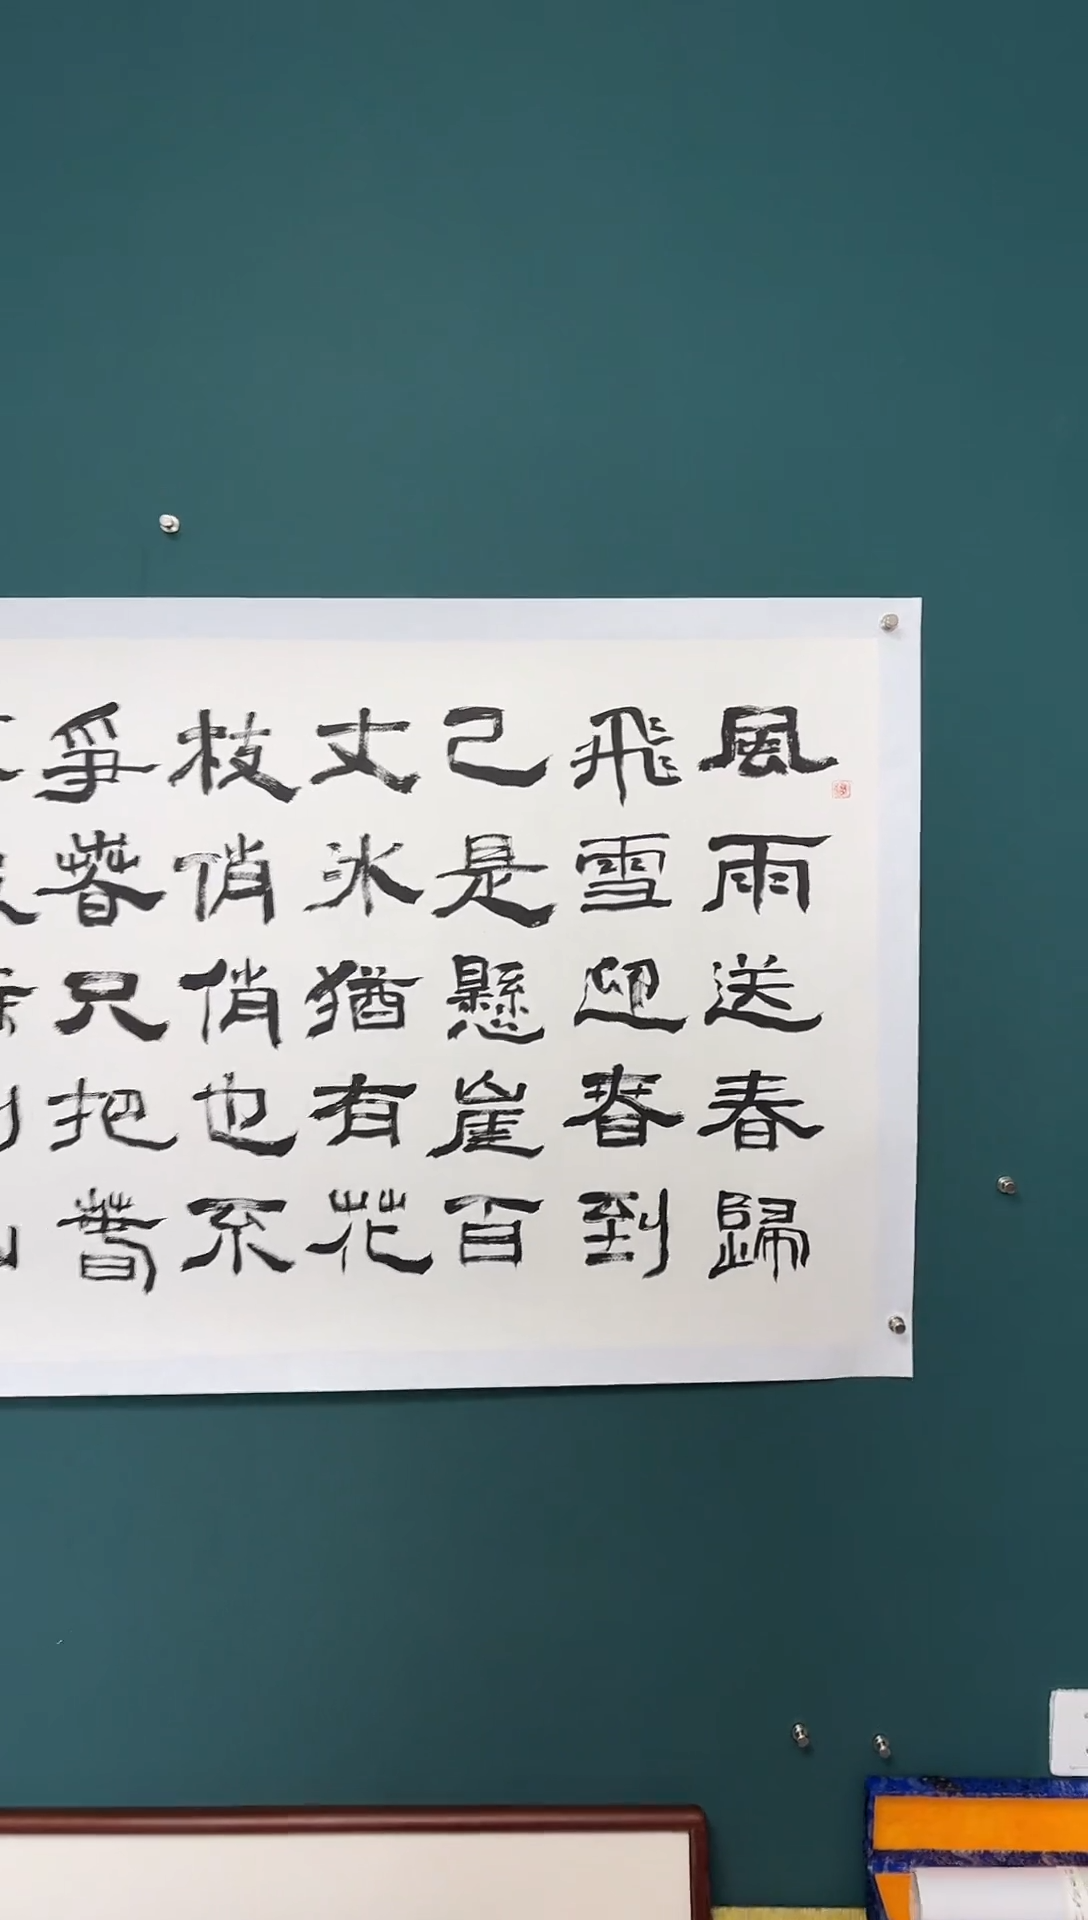 風雨送春歸
飛雪迎春到
己是懸崖百
丈冰猶有花
枝俏俏也不
爭春只把春